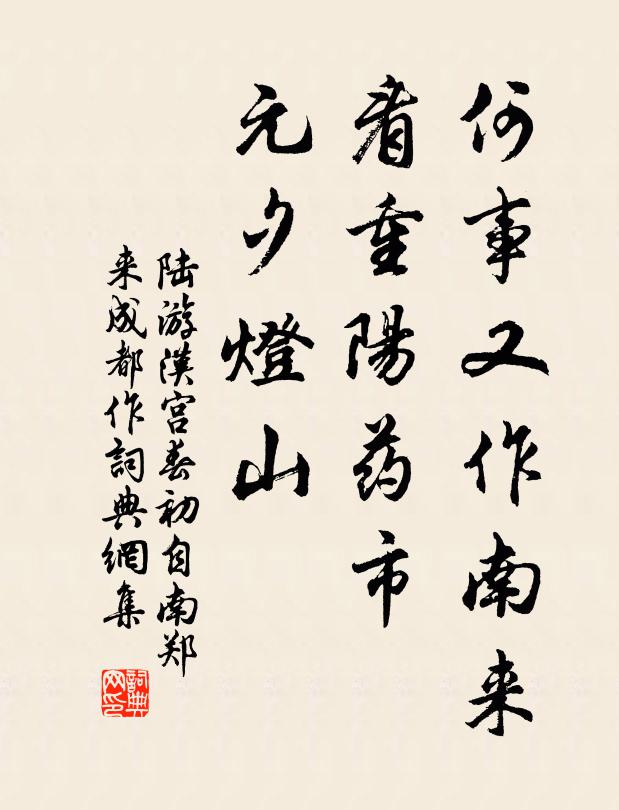 何事又作南来
看重陽药市
元夕燈山
陆游漢宫春初自南郑
来成都作詞典網集
詞典
网印